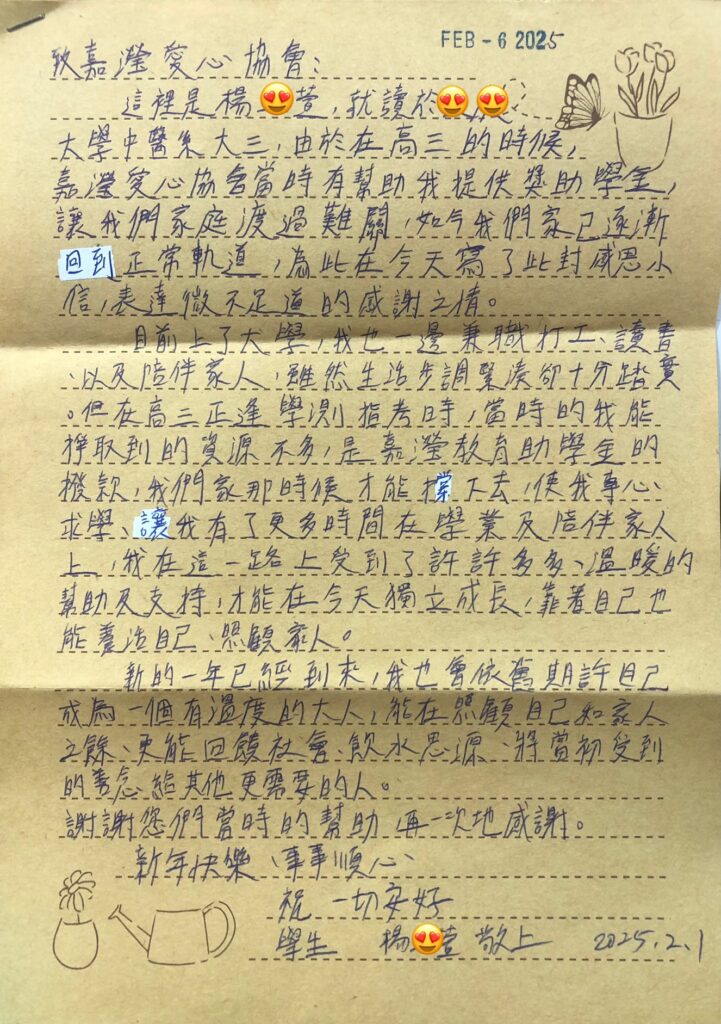 FEB - 6 2025
致嘉瀅愛心協會：
這裡是楊萱，就讀於
大學中醫系大三，由於在高三的時候，
嘉瀅愛心協會當時有幫助我提供獎助學金，
讓我們家庭渡過難關，如今我們家已逐漸
回到正常軌道，為此在今天寫了此封感恩小
信，表達微不足道的感謝之情。
目前上了大學，我也一邊兼職打工、讀書
、以及陪伴家人，雖然生活步調緊湊卻十分踏實
。但在高三正逢學測指考時，當時的我能
掙取到的資源不多，是嘉瀅教育助學金的
撥款，我們家那時候才能撐下去，使我專心
求學、讓我有了更多時間在學業及陪伴家人
上，我在這一路上受到了許許多多、溫暖的
幫助及支持，才能在今天獨立成長，靠著自己也
能養活自己、照顧家人。
新的一年已經到來，我也會依舊期許自己
成為一個有溫度的大人，能在照顧自己和家人
之餘、更能回饋社會、飲水思源、將當初受到
的善念給其他更需要的人。
謝謝您們當時的幫助，再一次地感謝。
新年快樂、事事順心、
祝 一切安好
學生 楊萱 敬上 2025.2.1